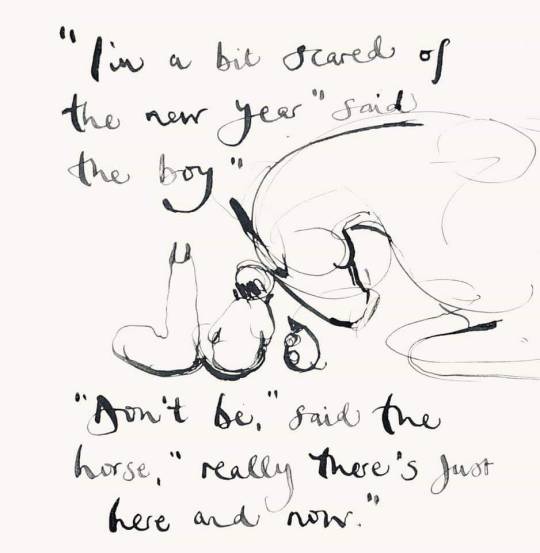 "I'm a bit scared of
the new year" said
the boy"
"Don't be," said the
horse," really there's just
here and now."